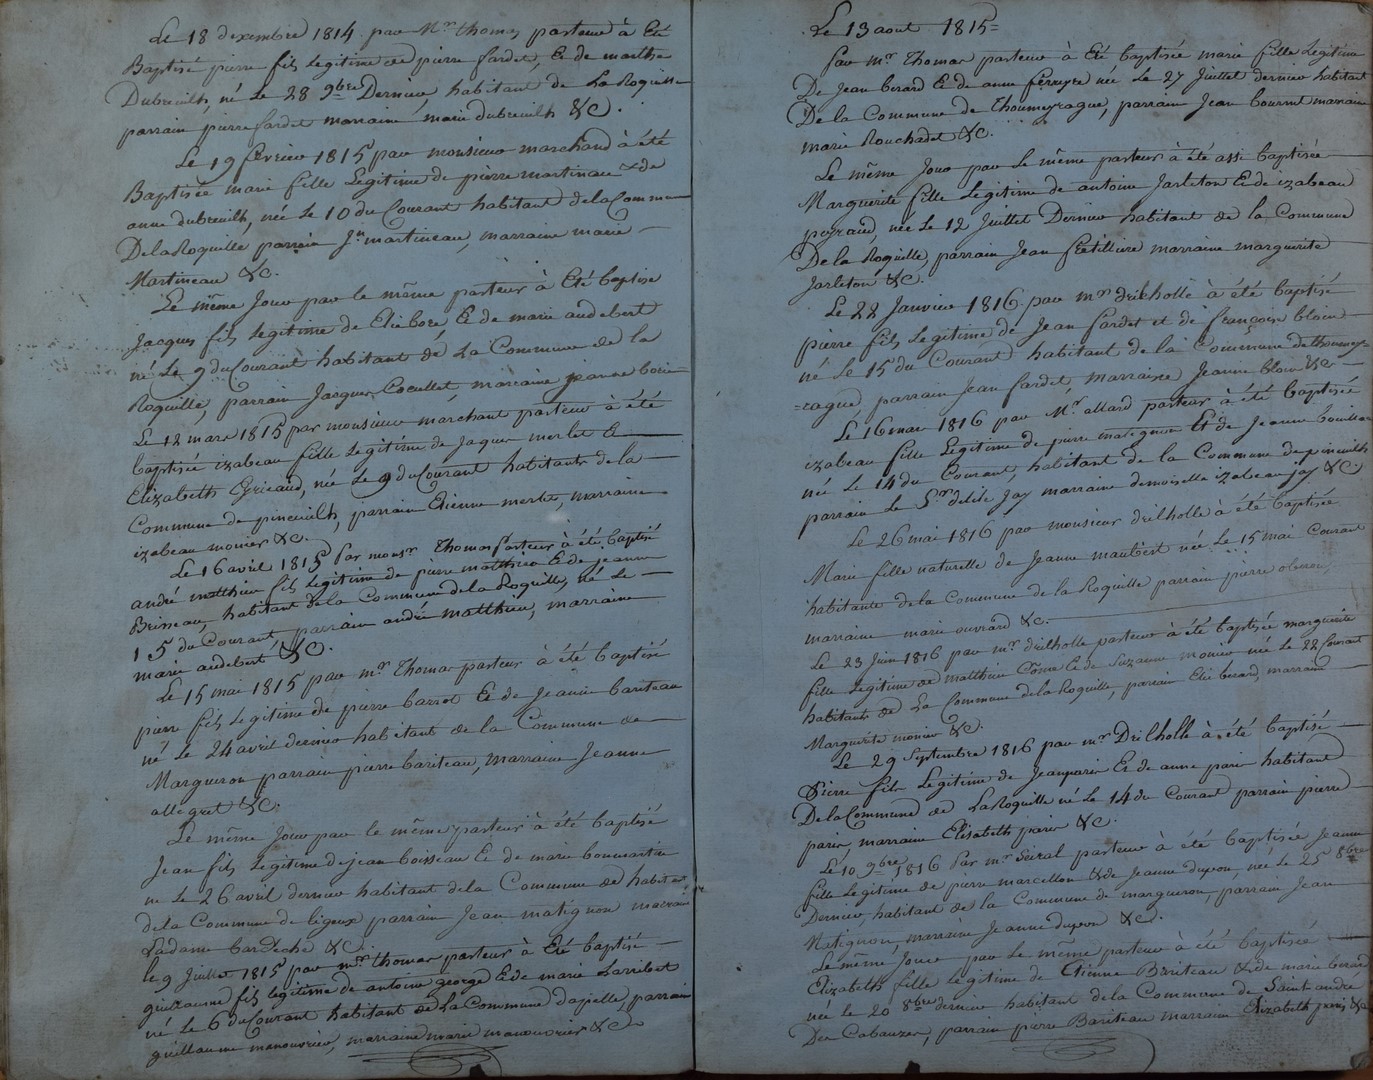 Le 18 dexembre 1814 par Mr thomas pasteur à Eté
Baptisé pierre fils Legitime de pierre fardet, E de marthe
Dubreuilh, né Le 28 9bre Dernier habitant de La Roquille
parrain pierre fardet marraine marie dubreuilh &c.
Le 19 fevrier 1815 par monsieur marchand à été
Baptisée marie fille Legitime de pierre martineau & de
anne dubreuilh, née Le 10 du Courant habitant de la Commune
De la Roquille parrain Jn martineau, marraine marie
Martineau &c.
Le même Jour par le même pasteur à Eté baptisé
Jacques fils Legitime de Elie bore, E de marie audebert
né Le 9 du Courant habitant de La Commune de la
Roquille, parrain Jacques Cocullet, marraine jeanne
Le 12 mars 1815 par monsieur marchant pasteur à été
baptisée izabeau fille Legitime de Jaques merlet E
Elizabeth Eyricaud, née Le 9 du Courant habitants de la
Commune de pineuilh, parrain Etienne merlet, marraine
izabeau monier &c.
Le 16 avril 1815 par monsr Thomas pasteur à été baptisé
andré matthieu fils Legitime de pierre matthieu E de jeanne
Brisseau, habitant de la Commune de la Roquille, né Le
15 du Courant, parrain andré matthieu, marraine
marie audebert &c.
Le 15 mai 1815 par mr Thomas pasteur à été baptisé
pierre fils Legitime de pierre barrot E de Jeanne bariteau
né Le 24 avril dernier habitant de la Commune de
Margueron parrain pierre bariteau, marraine Jeanne
allegret &c.
Le même Jour par le même pasteur à été baptisé
Jean fils Legitime de jean boisseau E de marie bonmartin
né Le 26 avril dernier habitant de la Commune de habitant
de la Commune de ligeux parrain Jean matignon marraine
Ladame bardeche &c.
le 9 Juillet 1815 par mr thomas pasteur à Eté baptisé
guillaume fils legitime de antoine george E de marie Larribet
né Le 6 du Courant habitant de La Commune parrain
guillaume manouvrier, marraine marie manouvrier &c.
Le 13 aout 1815=
par mr Thomas pasteur à Eté baptisée marie fille Legitime
De Jean berard E de anne née Le 27 Juillet dernier habitant
De la Commune de Thoumeyrague, parrain Jean marraine
marie Rouchadet &c.
Le même Jour par le même pasteur à été assi baptisée
Marguerite fille Legitime de antoine Jarleton E de izabeau
peyraud, née Le 12 Juillet Dernier habitant de la Commune
De la Roquille, parrain Jean marraine marguerite
Jarleton &c.
Le 22 Janvier 1816 par mr drilholle à été baptisé
pierre fils Legitime de Jean fardet et de françoise blouin
né le 15 du Courant habitant de la Commune de thoumey=
=rague parrain Jean fardet, Marraine Jeanne blouin &c
Le 16 mars 1816 par Mr allard pasteur à été baptisée
izabeau fille Legitime de pierre matignon Et de Jeanne
née Le 14 du Courant, habitant de la Commune de pineuilh
parrain le Sr delile Jay marraine demoiselle izabeau jay &c.
Le 26 mai 1816 par monsieur drilholle à été baptisée
Marie fille naturelle de Jeanne maubert née Le 15 mai Courant
habitante de la Commune de la Roquille parrain pierre
marraine marie ouvrard &c.
Le 23 Juin 1816 par mr drilholle pasteur à été baptisée marguerite
fille Legitime de matthieu Come E de Suzanne monier née Le 22 Courant
habitants de La Commune de la Roquille, parrain Elie berard, marraine
Marguerite monier &c.
Le 29 Septembre 1816 par mr Drilholle à été baptisé
Pierre fils Legitime de Jean paris E de anne paris habitant
De la Commune de La Roquille né Le 14 du Courant parrain pierre
paris, marraine Elisabeth paris &c.
Le 10 9bre 1816 Par mr Seiral pasteur à été baptisée Jeanne
fille Legitime de pierre marcellon & de Jeanne dupon, née Le 25 8bre
Dernier, habitant de la Commune de margueron, parrain Jean
Matignon, marraine Jeanne dupon &c.
Le même Jour par le même pasteur à été baptisée
Elizabeth fille Legitime de Etienne Bariteau & de marie berard
née le 20 8bre dernier habitant de la Commune de Saint andré
De Cabauze, parrain pierre Bariteau marraine Elizabeth &c